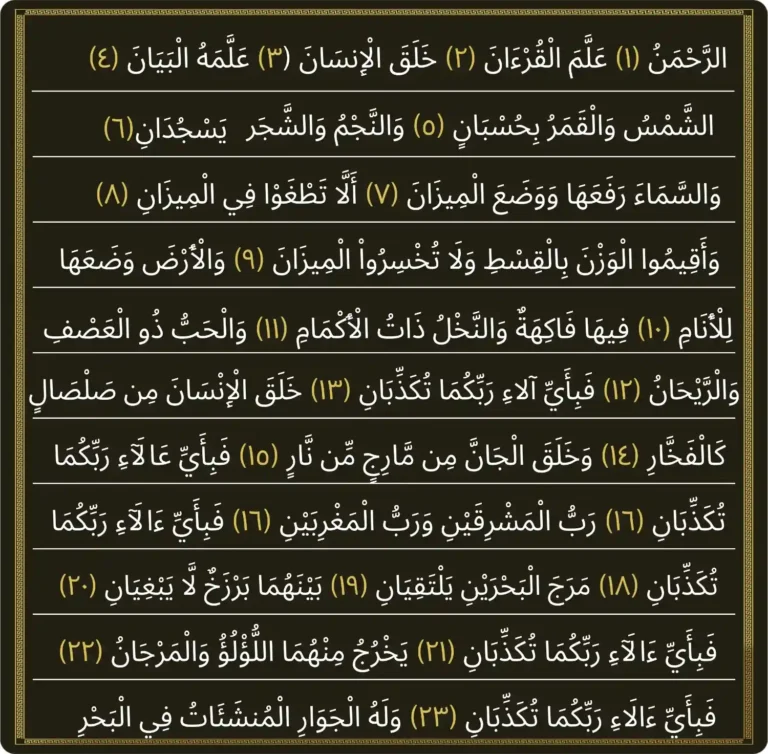 الرَّحْمَنُ (١) عَلَّمَ الْقُرْءَانَ (٢) خَلَقَ الْإِنسَانَ (٣) عَلَّمَهُ الْبَيَانَ (٤)
الشَّمْسُ وَالْقَمَرُ بِحُسْبَانٍ (٥) وَالنَّجْمُ وَالشَّجَر يَسْجُدَانِ(٦)
وَالسَّمَاءَ رَفَعَهَا وَوَضَعَ الْمِيزَانَ (٧) أَلَّا تَطْغَوْا فِي الْمِيزَانِ (٨)
وَأَقِيمُوا الْوَزْنَ بِالْقِسْطِ وَلَا تُخْسِرُواْ الْمِيزَانَ (٩) وَالْأَرْضَ وَضَعَهَا
لِلْأَنَامِ (١٠) فِيهَا فَاكِهَةٌ وَالنَّخْلُ ذَاتُ الْأَكْمَامِ (١١) وَالْحَبُّ ذُو الْعَصْفِ
وَالْرَّيْحَانُ (١٢) فَبِأَيِّ آلاءِ رَبِّكُمَا تُكَذِّبَانِ (١٣) خَلَقَ الْإِنْسَانَ مِن صَلْصَالٍ
كَالْفَخَّارِ (١٤) وَخَلَقَ الْجَانَّ مِن مَّارِجٍ مِّن نَّارٍ (١٥) فَبِأَيِّ عَالَآءِ رَبِّكُمَا
تُكَذِّبَانِ (١٦) رَبُّ الْمَشْرِقَيْنِ وَرَبُّ الْمَغْرِبَيْنِ (١٦) فَبِأَيِّ ءَالَآءِ رَبِّكُمَا
تُكَذِّبَانِ (١٨) مَرَجَ الْبَحْرَيْنِ يَلْتَقِيَانِ (١٩) بَيْنَهُمَا بَرْزَخٌ لَّا يَبْغِيَانِ (٢٠)
فَبِأَيِّ ءَالَآءِ رَبِّكُمَا تُكَذِّبَانِ (٢١) يَخْرُجُ مِنْهُمَا اللُّؤْلُؤُ وَالْمَرْجَانُ (٢٢)
فَبِأَيِّ ءَالَاءِ رَبِّكُمَا تُكَذِّبَانِ (٢٣) وَلَهُ الْجَوَارِ الْمُنشَئَاتُ فِي الْبَحْرِ